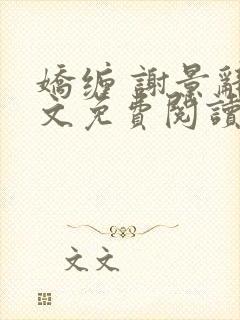 嬌缠 謝景辭
文免費閱讀
文文